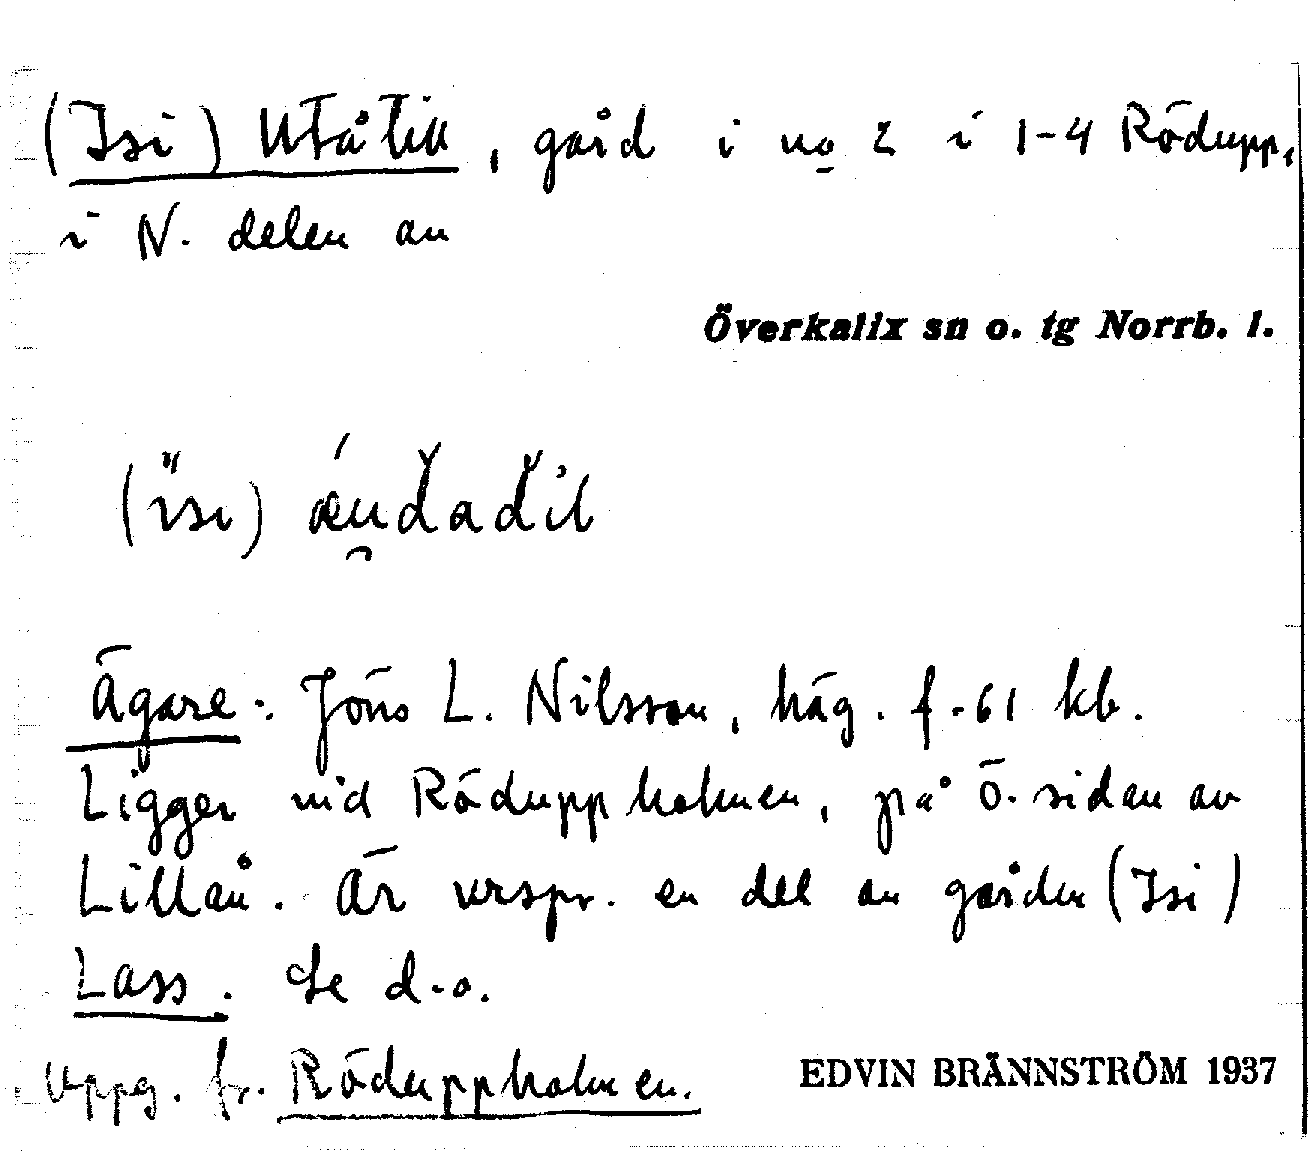 (Isi) Utåtill, gård i no 2 i 1-4 Rödupp,
i N. delen av
Överkalix sn o. tg Norrb. l.
(isi)
Ägare: Jöns L. Nilsson, häg. f.-61 kb.
Ligger vid Rödupp holmen, på Ö. sidan av
Lillån. Är urspr. en del av gården (Isi)
Lass. Se d.o.
Uppg. fr. Röduppholmen.
EDVIN BRÄNNSTRÖM 1937